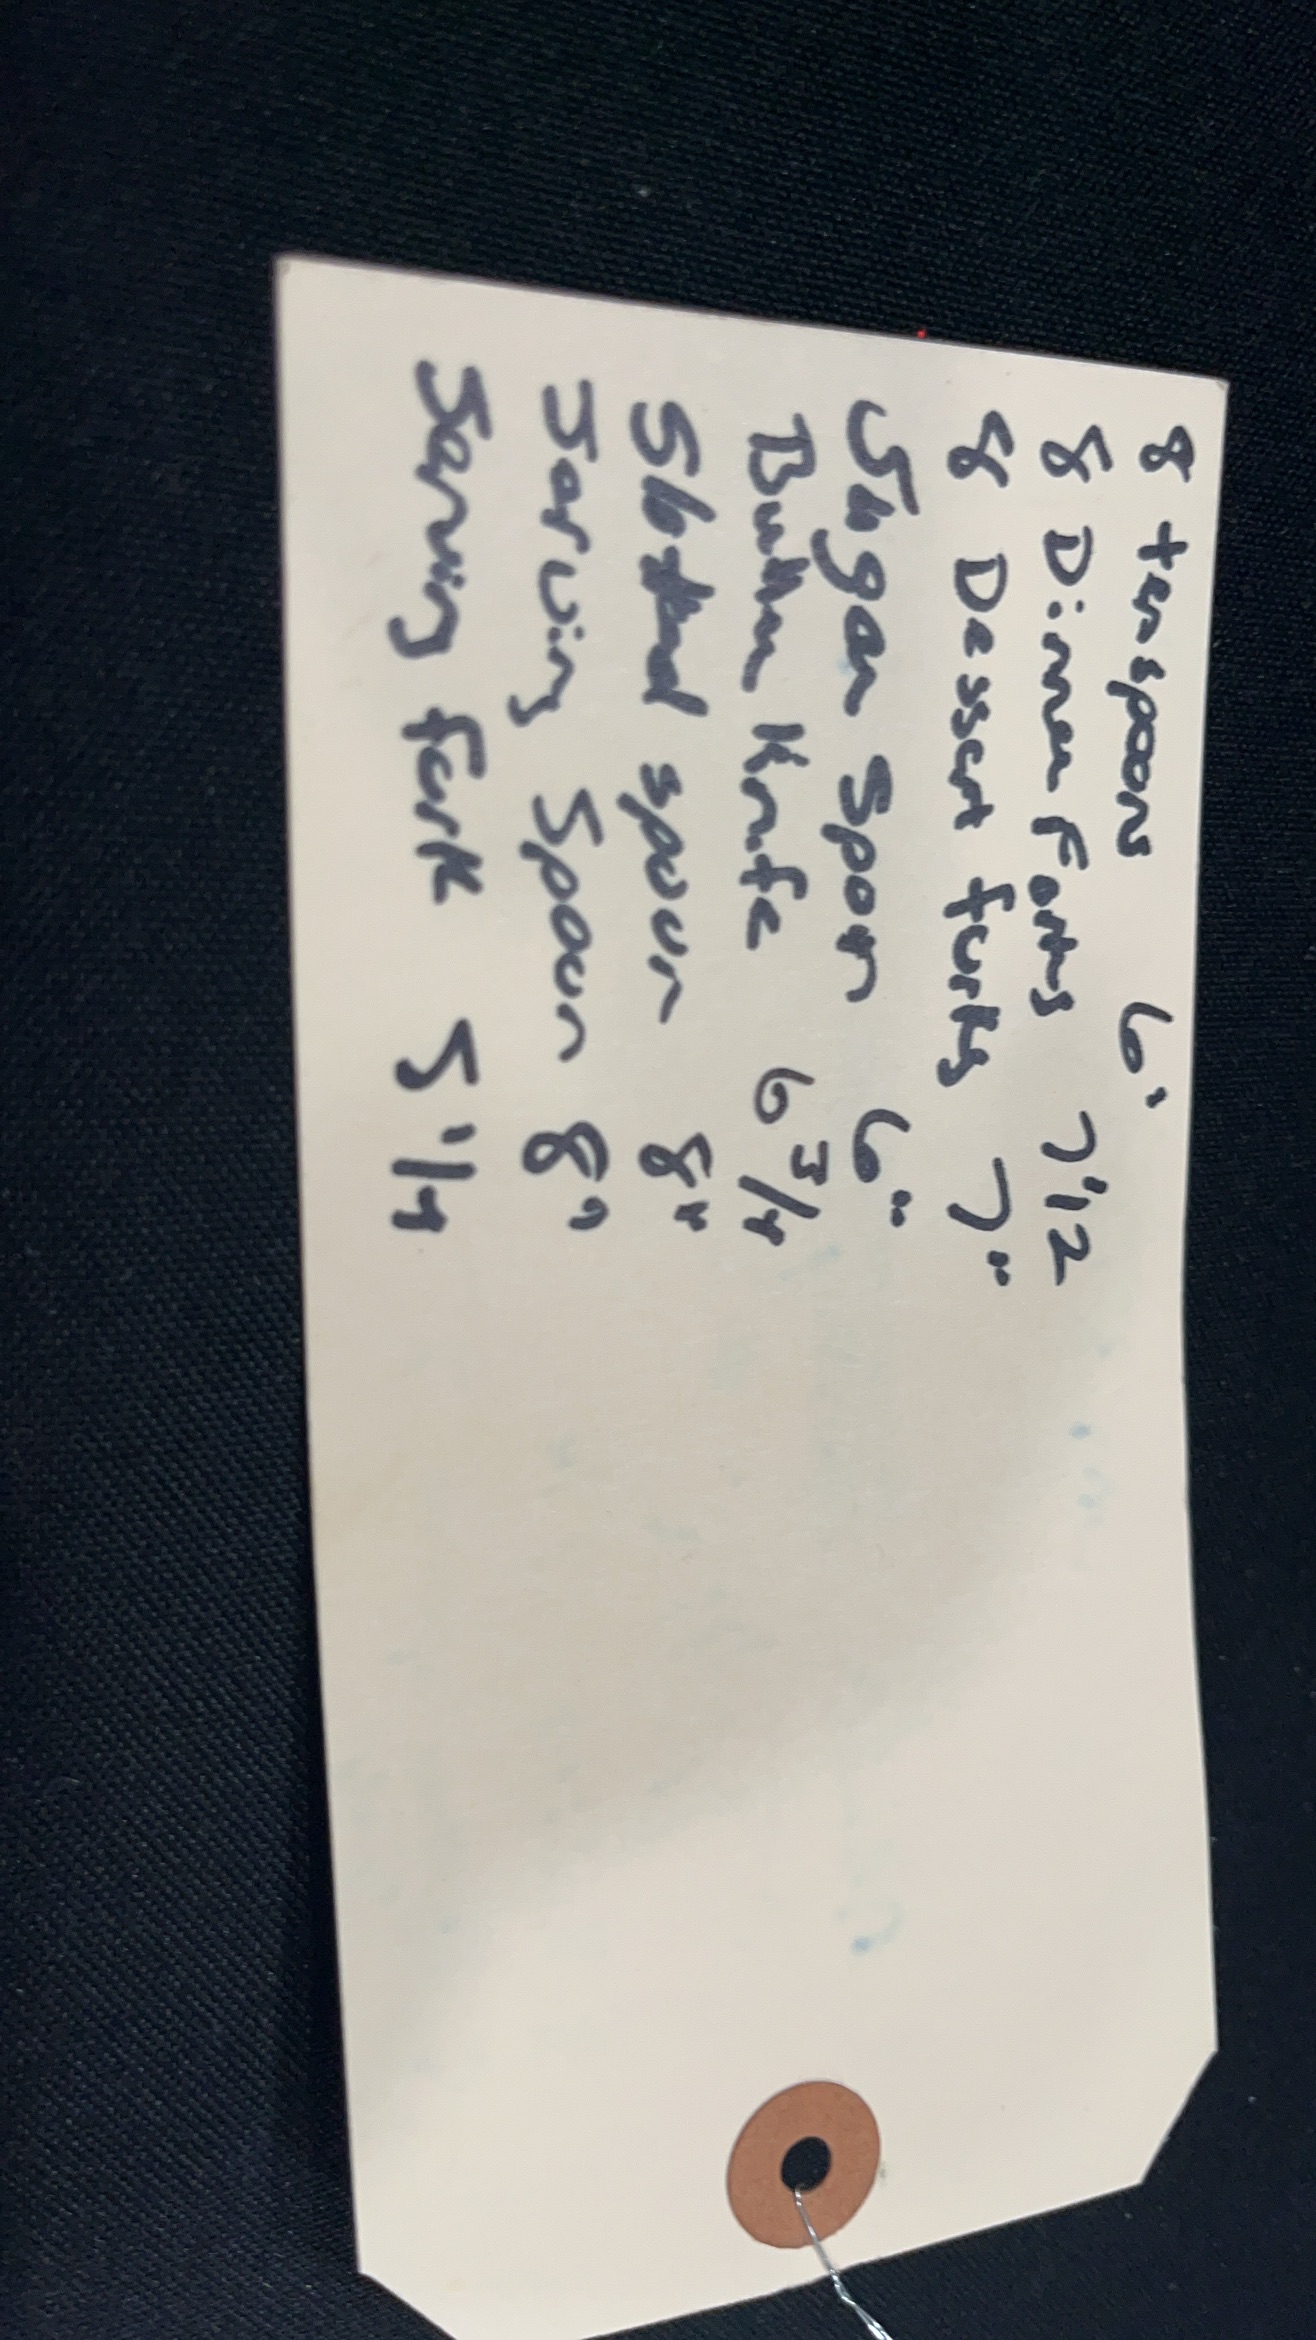 8 teaspoons 6"
8 Dinner Forks 7 1/2
8 Dessert forks 7"
Sugar Spoon 6"
Butter Knife 6 3/4
Slotted spoon 8"
Serving Spoon 8"
Serving fork 5 1/4